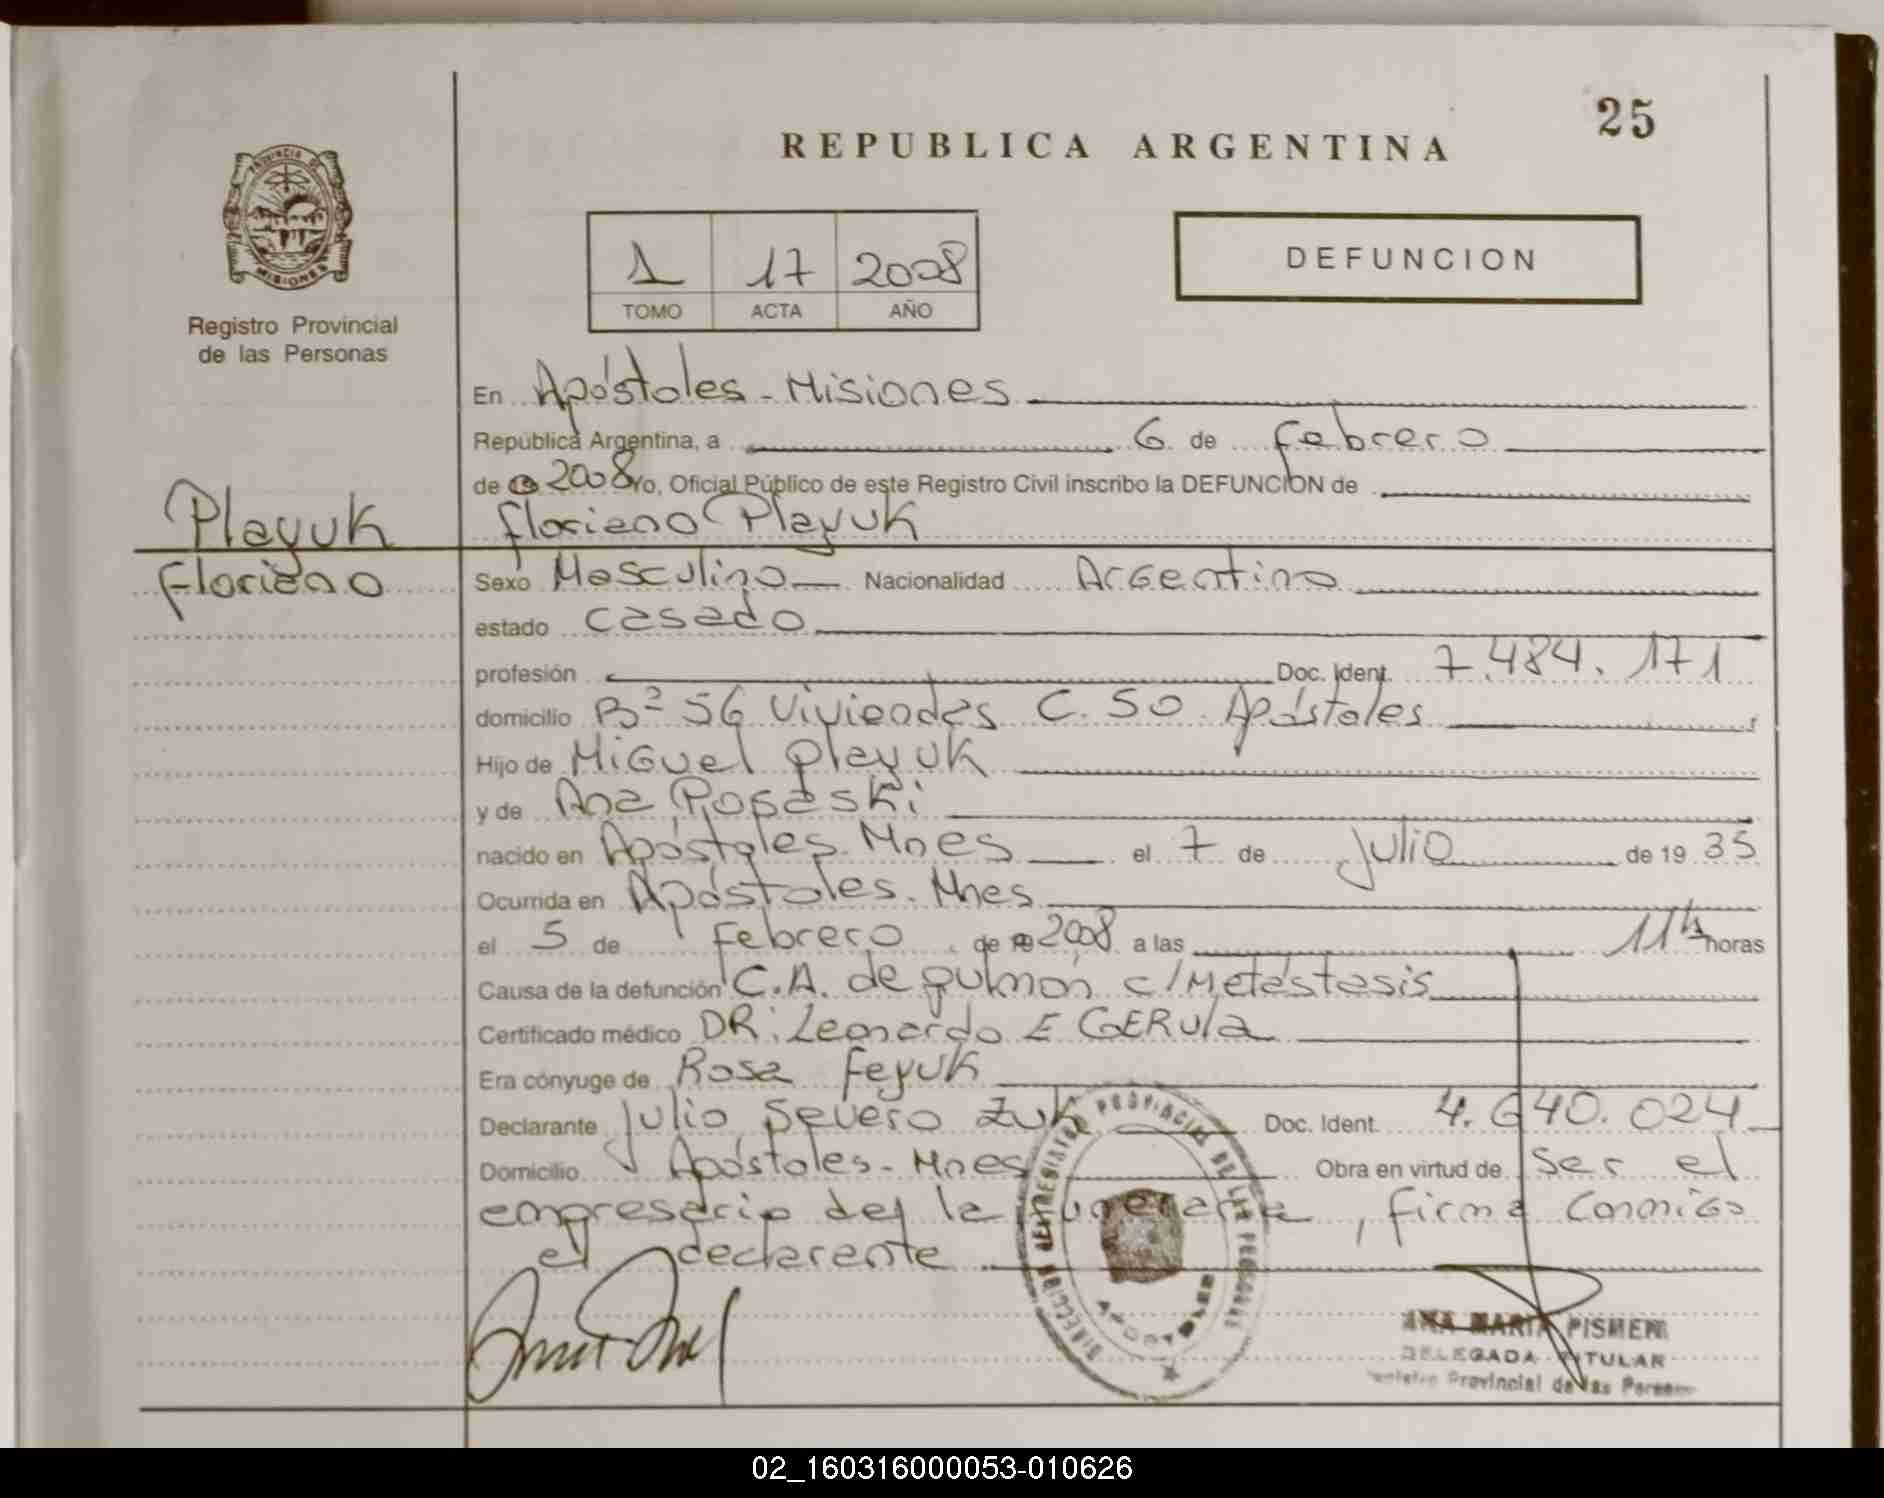 25
REPUBLICA ARGENTINA
PROVINCIA DE
MISIONES
Registro Provincial
de las Personas
1 17 2008
TOMO ACTA AÑO
DEFUNCION
En Apóstoles - Misiones
República Argentina, a 6 de febrero
de 2008 Yo, Oficial Público de este Registro Civil inscribo la DEFUNCION de
Playuk
Floriano Playuk
Floriano
Sexo Masculino Nacionalidad Argentino
estado casado
profesión Doc. Ident. 7.484.171
domicilio Bº 56 Viviendas C. 50 Apóstoles
Hijo de Miguel Playuk
y de Ana Posaski
nacido en Apóstoles Mnes el 7 de Julio de 1935
Ocurrida en Apóstoles. Mnes
el 5 de Febrero de 2008 a las 11h horas
Causa de la defunción C.A. de pulmón c/Metástasis
Certificado médico DR. Leonardo E GERula
Era cónyuge de Rosa Feyuk
Declarante Julio Severo Zuk Doc. Ident. 4.640.024
Domicilio Apóstoles - Mnes Obra en virtud de Ser el
empresario de la funeraria, firma conmigo
el declarante
DIRECCION DEL REGISTRO PROVINCIAL DE LAS PERSONAS
APOSTOLES
ANA MARIA PISMENI
DELEGADA TITULAR
Registro Provincial de las Personas
02_160316000053-010626